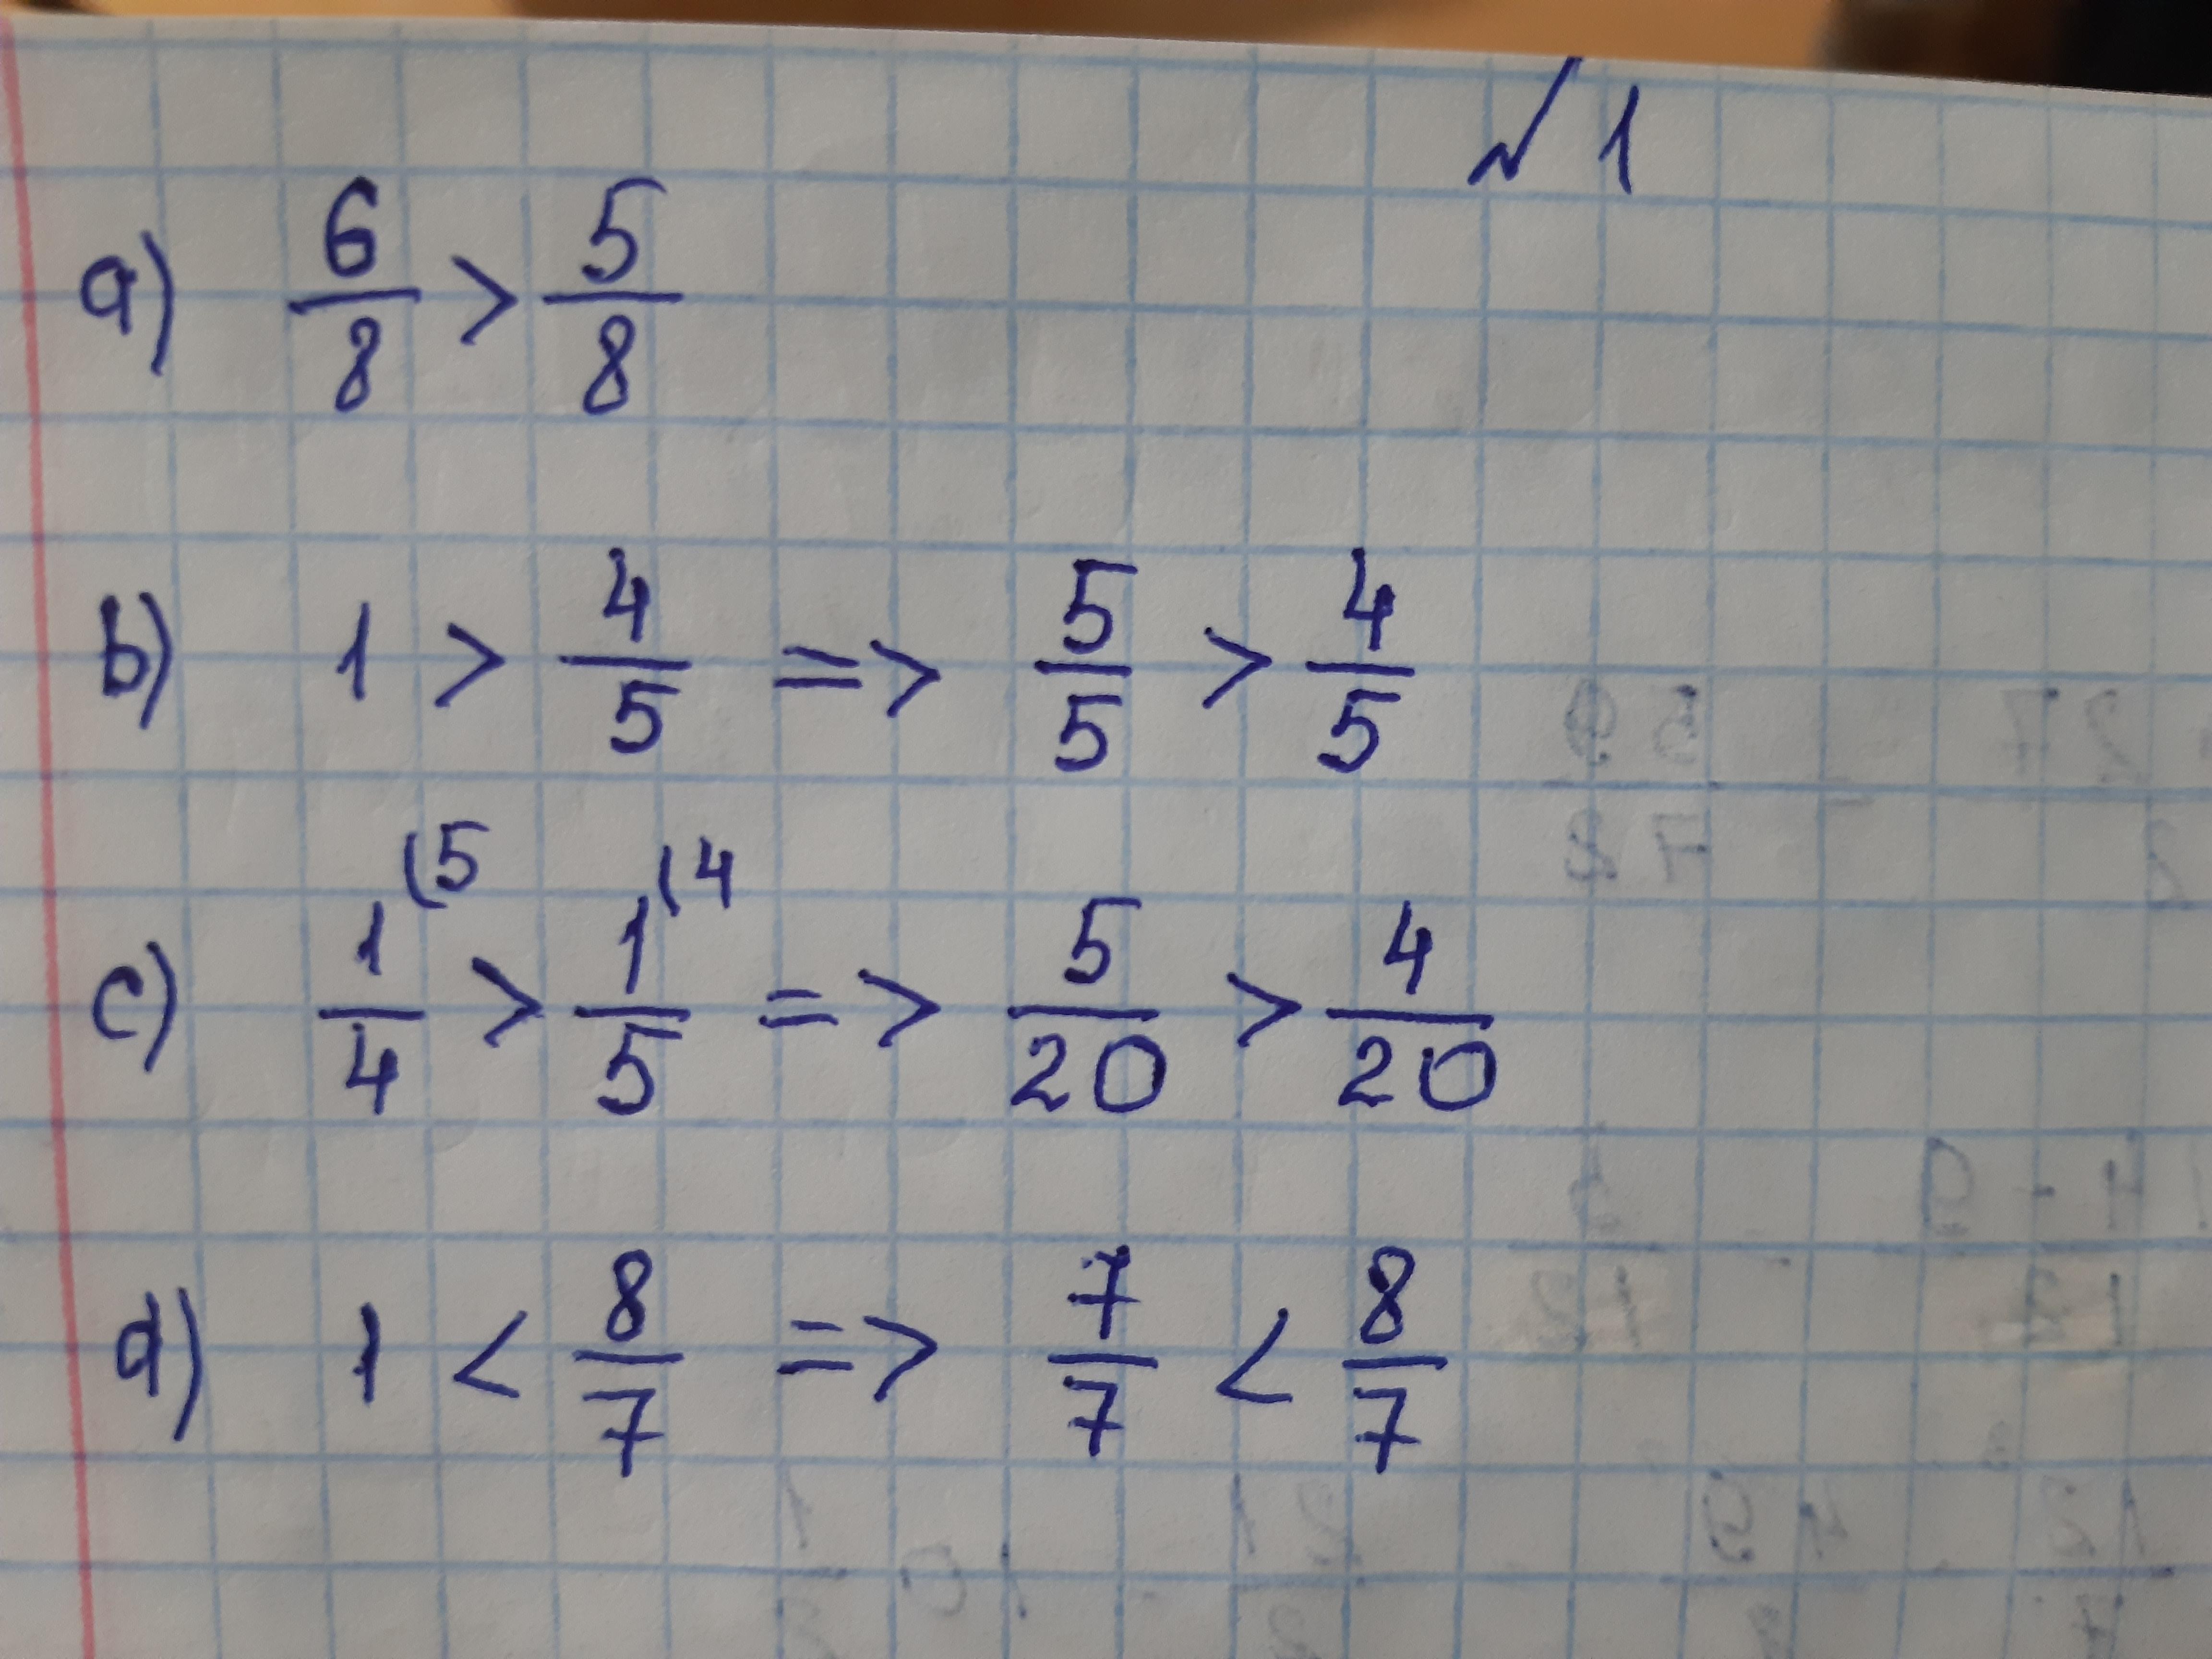 № 1
a) 6/8 > 5/8
b) 1 > 4/5 => 5/5 > 4/5
c) 1/4 (5 > 1/5 (4 => 5/20 > 4/20
d) 1 < 8/7 => 7/7 < 8/7